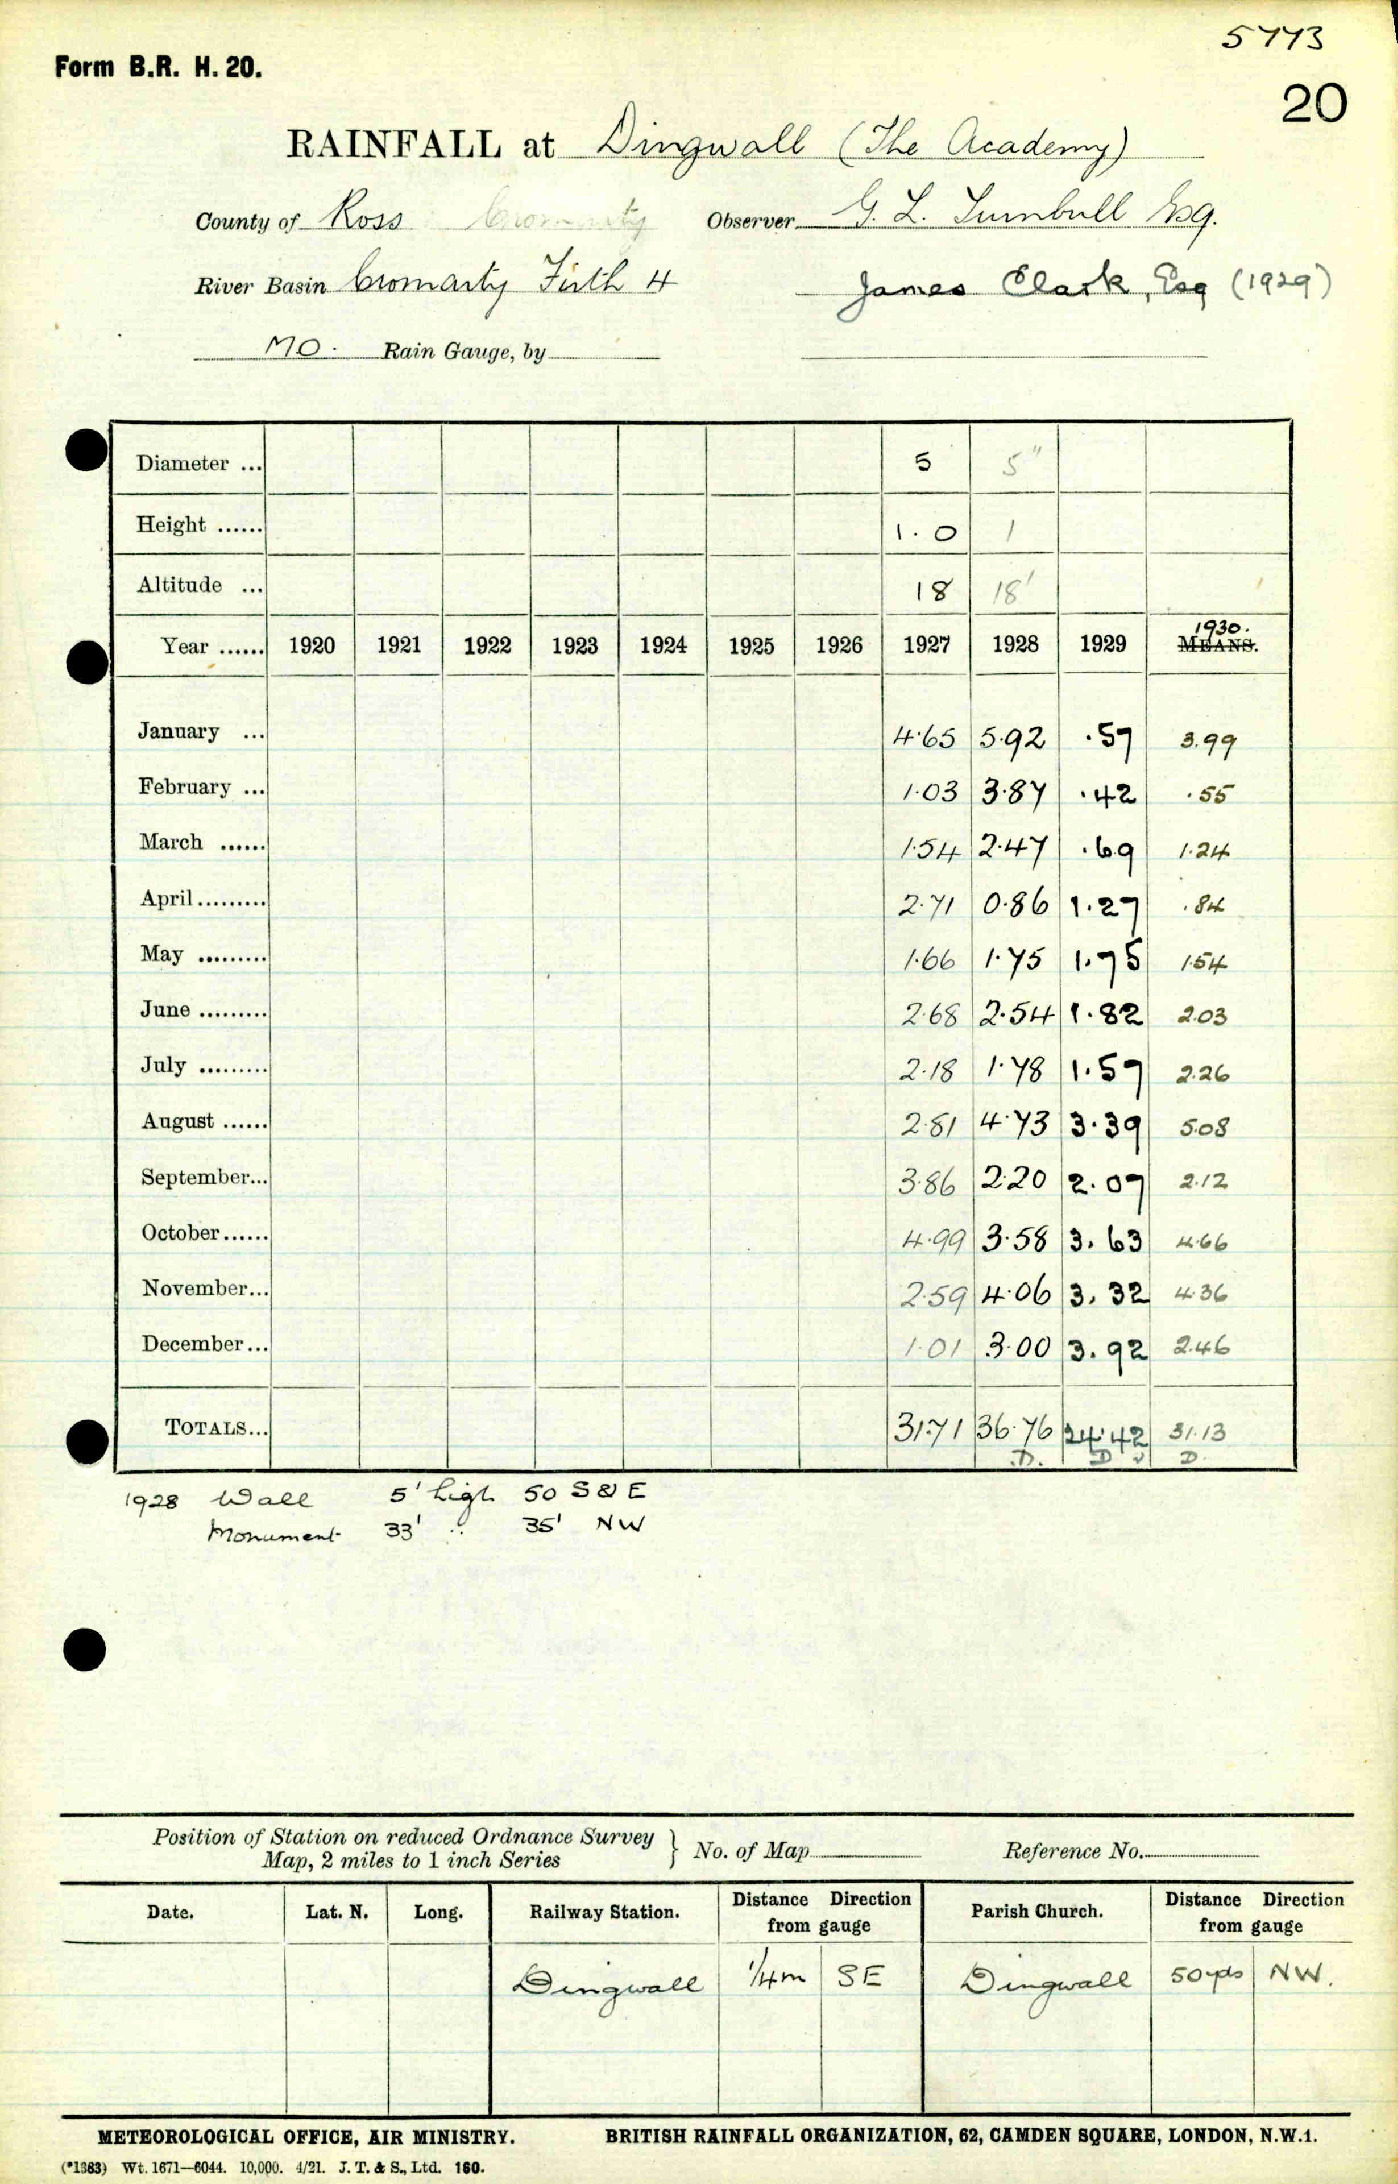 5773
Form B.R. H. 20.
20
RAINFALL at Dingwall (The Academy)
County of Ross Cromarty Observer G. L. Turnbull Esq.
River Basin Cromarty Firth 4 James Clark, Esq (1929)
MO. Rain Gauge, by
Diameter ... 5 5"
Height ...... 1.0 1
Altitude ... 18 18'
Year ...... 1920 1921 1922 1923 1924 1925 1926 1927 1928 1929 1930. MEANS.
January ... 4.65 5.92 .57 3.99
February ... 1.03 3.87 .42 .55
March ...... 1.54 2.47 .69 1.24
April ......... 2.71 0.86 1.27 .84
May ......... 1.66 1.75 1.75 1.54
June ......... 2.68 2.54 1.82 2.03
July ......... 2.18 1.78 1.57 2.26
August ...... 2.81 4.73 3.39 5.08
September... 3.86 2.20 2.07 2.12
October ...... 4.99 3.58 3.63 4.66
November... 2.59 4.06 3.32 4.36
December ... 1.01 3.00 3.92 2.46
TOTALS... 31.71 36.76 24.42 31.13
D. D D.
1928 Wall 5' high 50 S & E
Monument 33' " 35' NW
Position of Station on reduced Ordnance Survey
Map, 2 miles to 1 inch Series } No. of Map Reference No.
Date. Lat. N. Long. Railway Station. Distance Direction from gauge Parish Church. Distance Direction from gauge
Dingwall 1/4 m SE Dingwall 50 yds NW.
METEOROLOGICAL OFFICE, AIR MINISTRY. BRITISH RAINFALL ORGANIZATION, 62, CAMDEN SQUARE, LONDON, N.W.1.
(*1383) Wt. 1671—6044. 10,000. 4/21. J. T. & S., Ltd. 160.